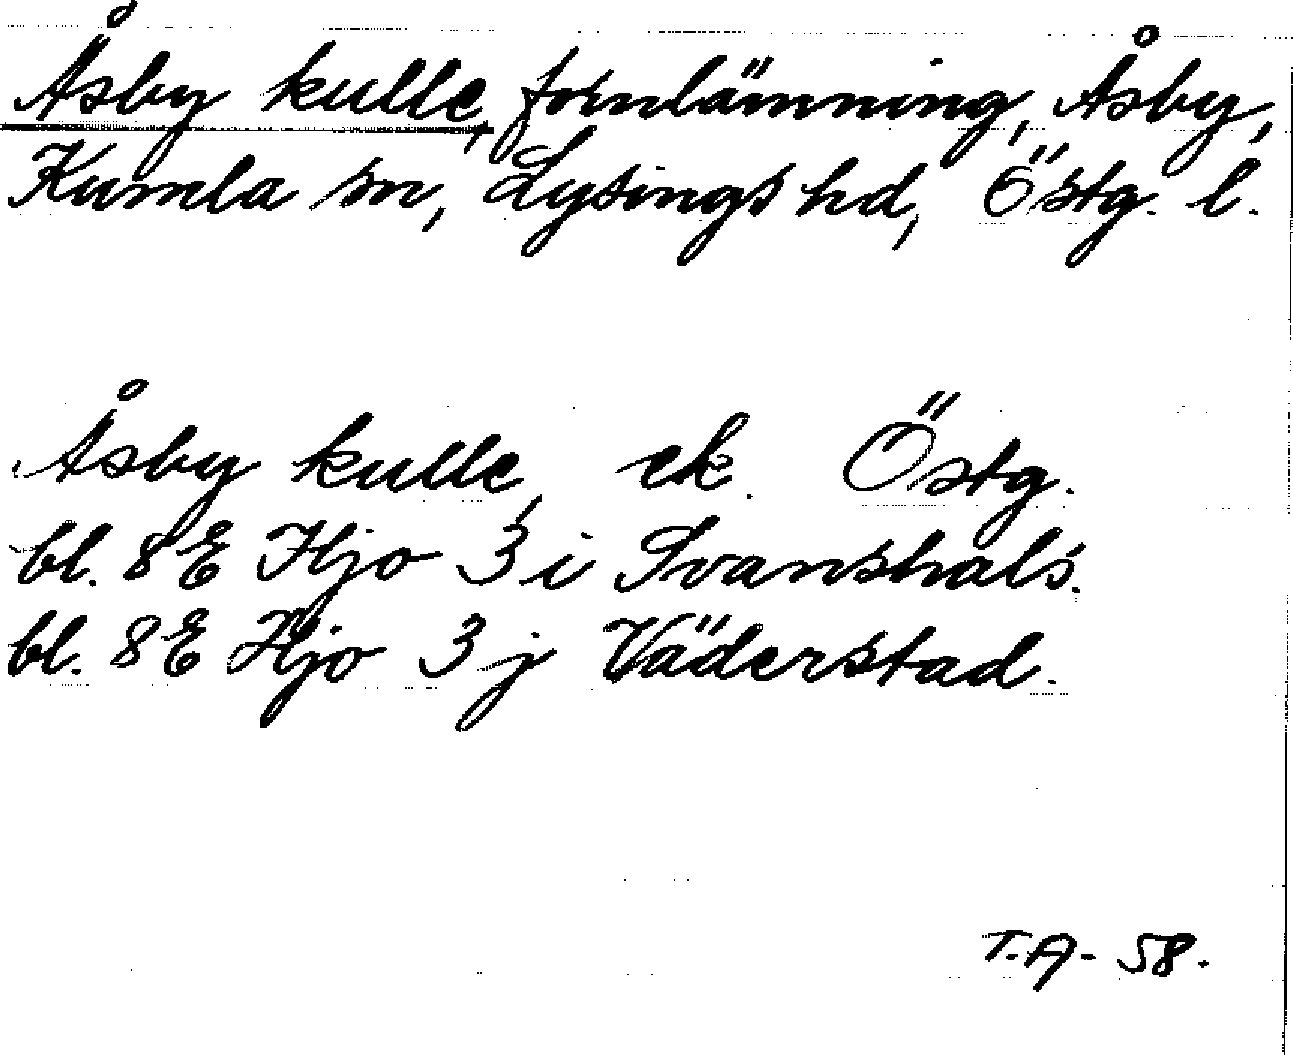 Åsby kulle, fornlämning, Åsby,
Kumla sn, Lysings hd, Östg. l.
Åsby kulle, ek. Östg.
bl. 8E Hjo 3 i Svanshals.
bl. 8E Hjo 3 j Väderstad.
T.A- 58.